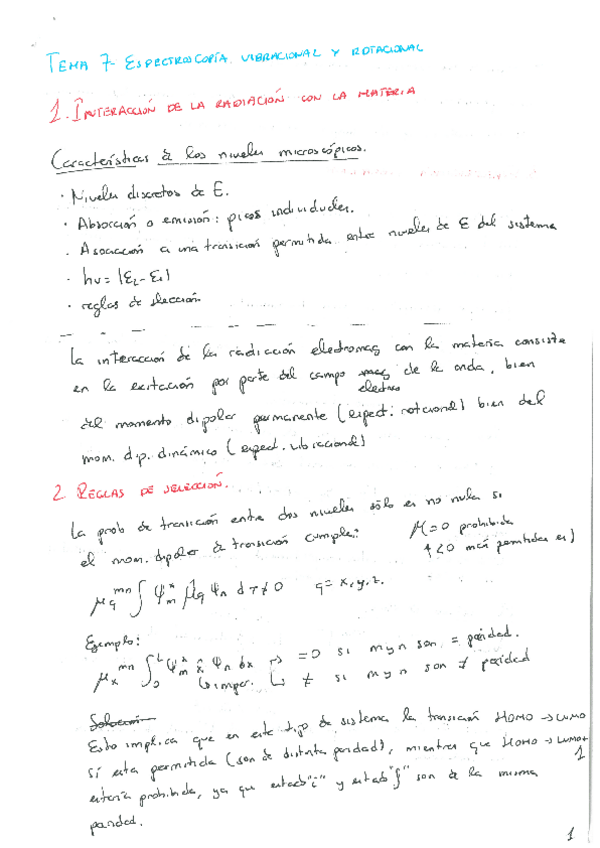 TEMA 7- ESPECTROSCOPÍA VIBRACIONAL Y ROTACIONAL
1. INTERACCIÓN DE LA RADIACIÓN CON LA MATERIA
Características de los niveles microscópicos.
· Niveles discretos de E.
· Absorción o emisión: picos individuales.
· Asociación a una transición permitida entre niveles de E del sistema
· hν = |ε₂ - ε₁|
· reglas de selección.
La interacción de la radiación electromag con la materia consiste
en la exitación por parte del campo electro de la onda, bien
del momento dipolar permanente (espect. rotacional) bien del
mom. dip. dinámico (espect. vibracional)
2 REGLAS DE SELECCIÓN.
La prob de transición entre dos niveles sólo es no nula si
el mom. dipolar de transición cumple:
μ=0 prohibida
(<0 más permitida es)
μq^mn ∫ Ψm* μ̂q Ψn dτ ≠ 0 q = x, y, z.
Ejemplo:
μx^mn ∫₀^L Ψm* x̂ Ψn dx → =0 si m y n son = paridad.
↳ impar. ↳ ≠ si m y n son ≠ paridad
Solución
Esto implica que en este tipo de sistema la transición HOMO → LUMO
sí esta permitida (son de distinta paridad), mientras que HOMO → LUMO+
1
estaría prohibida, ya que estado "i" y estado "f" son de la misma
paridad.
1